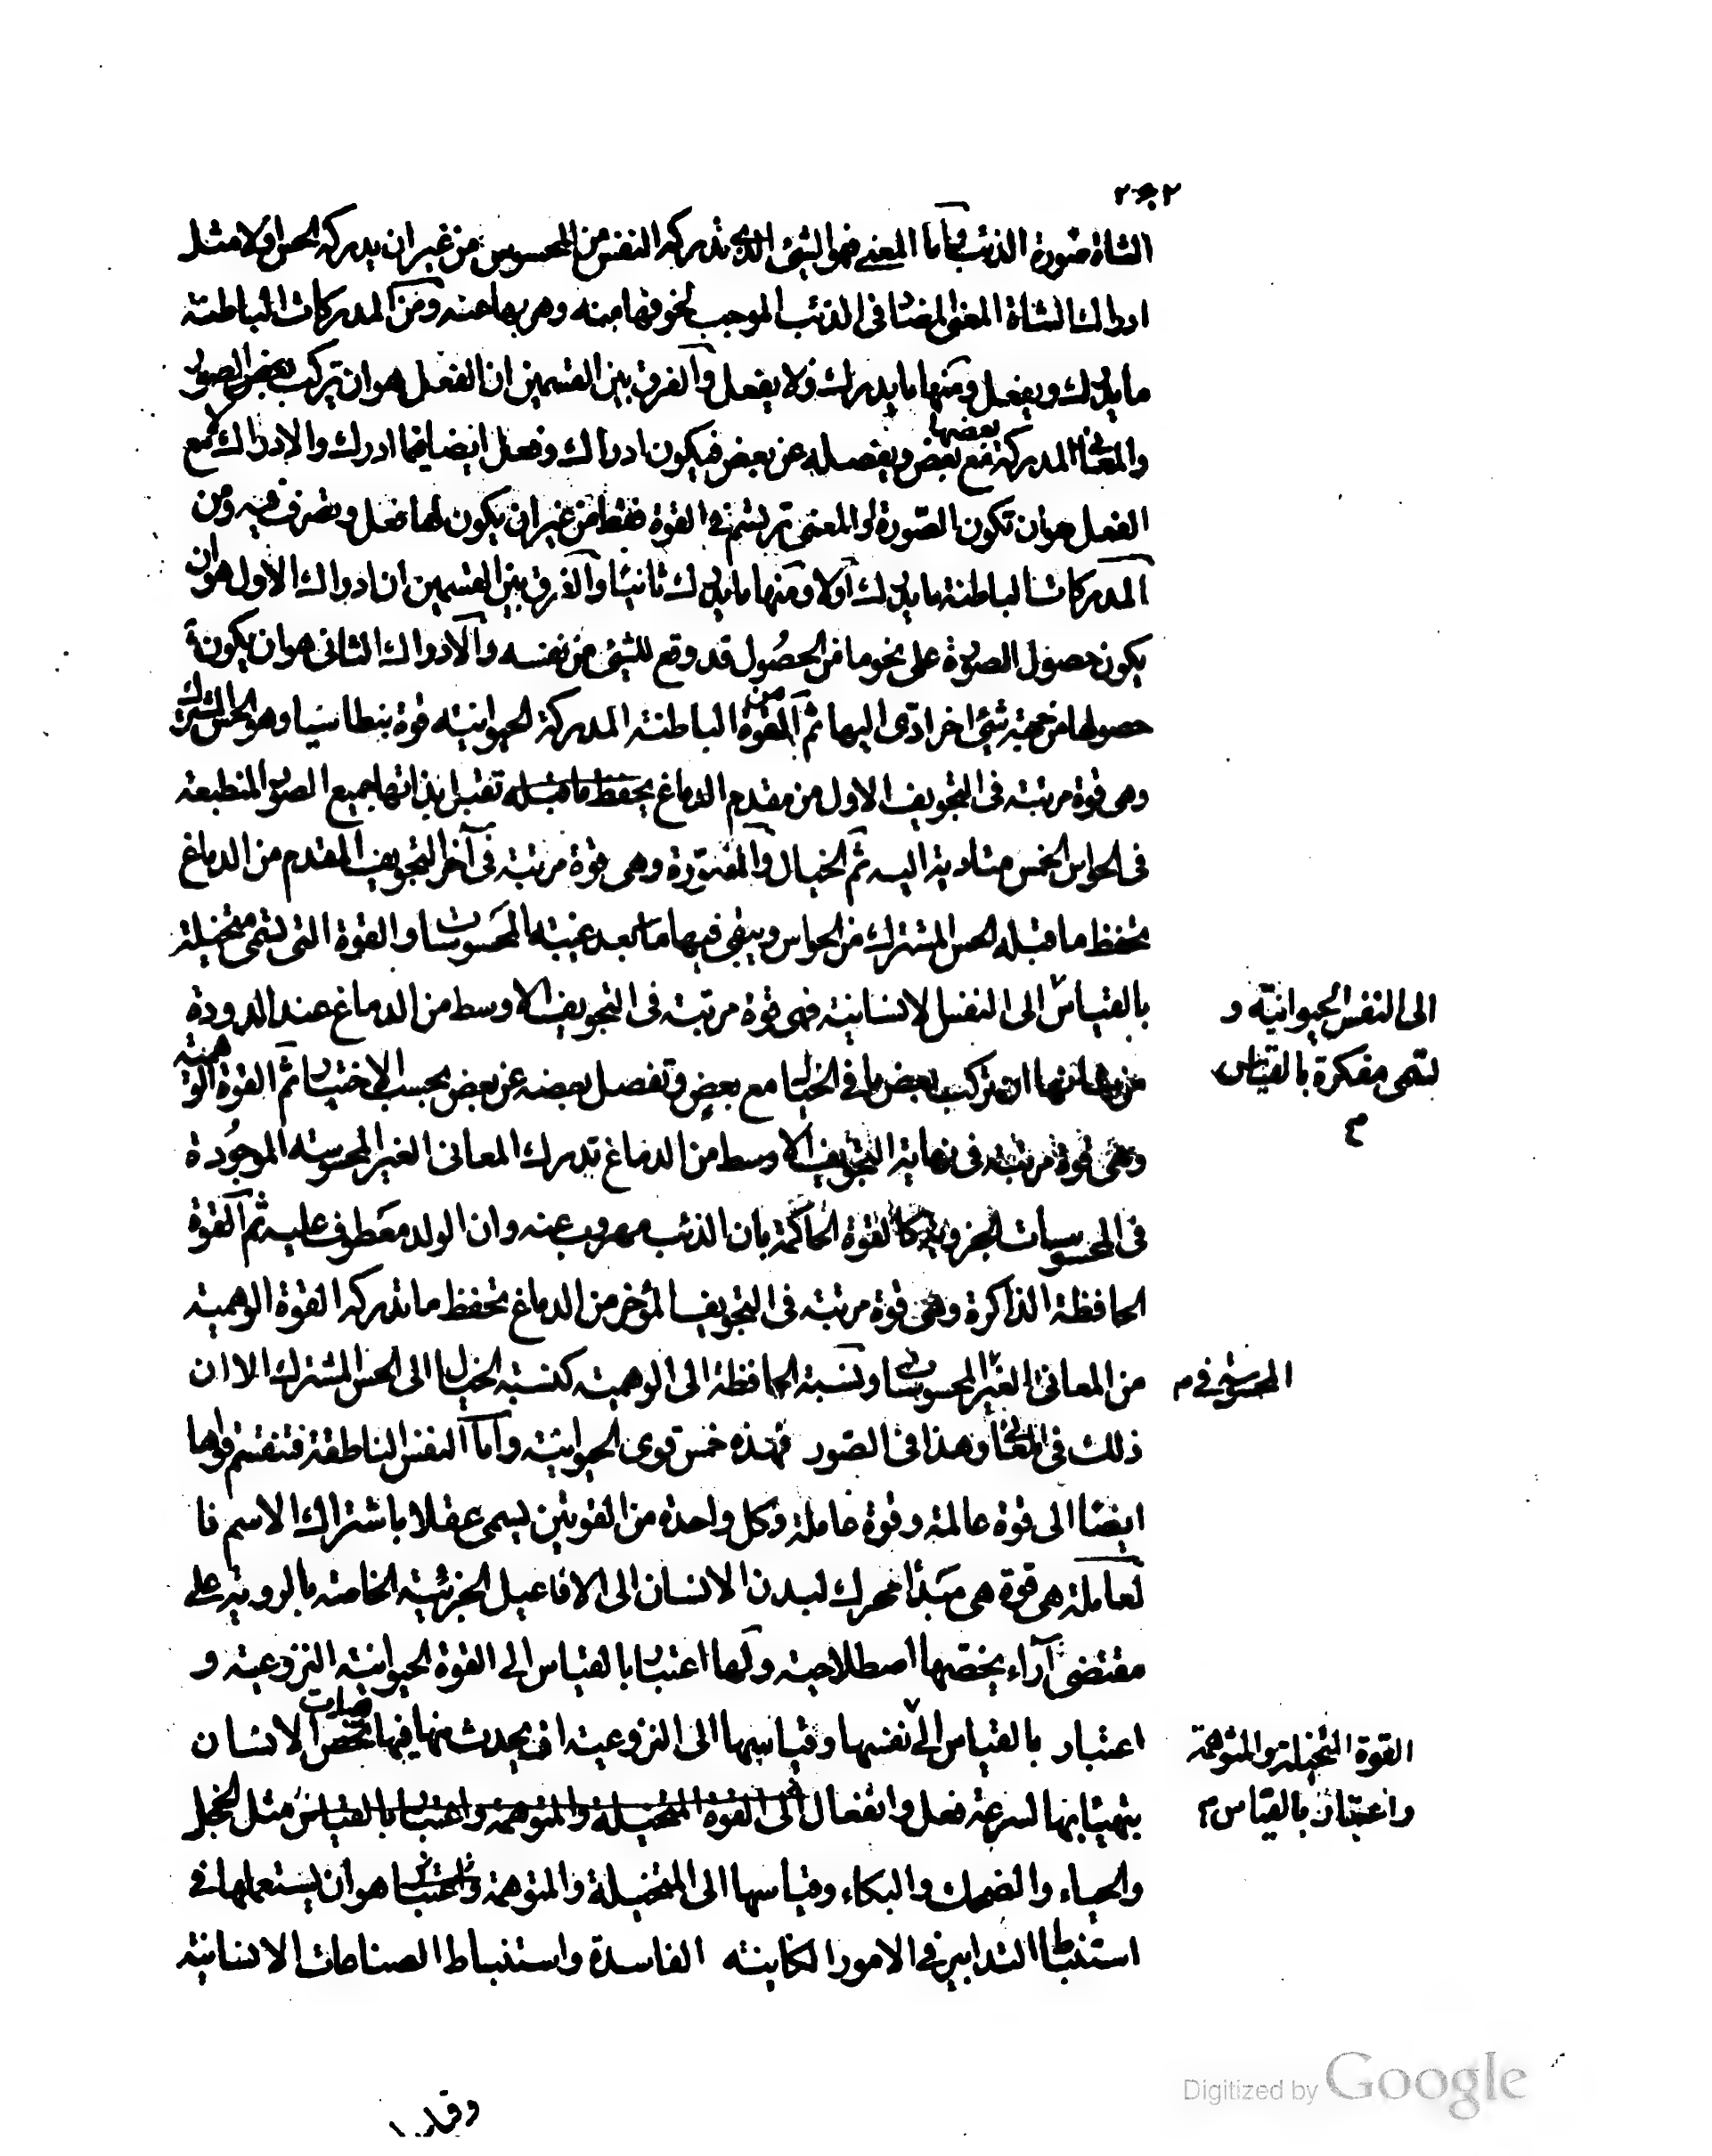 ٢٠٢
الشاة صورة الذئب واما المعنى فهو الشئ الذى تدركه النفس من المحسوس من غير ان يدركه الحس اولا مثل
ادراك الشاة المعنى المضاد فى الذئب الموجب لخوفها منه وهربها عنه ومن المدركات الباطنة
ما يدرك ويفعل ومنها ما يدرك ولا يفعل والفرق بين القسمين ان الفعل هو ان تركب بعض الصور
والمعانى المدركة بعضها مع بعض ويفصله عن بعض فيكون ادراك وفعل ايضا فيما ادرك والادراك لا مع
الفعل هو ان تكون الصورة او المعنى ترتسم فى القوة فقط من غير ان يكون لها فعل وتصرف فيه ومن
المدركات الباطنة ما يدرك اولا ومنها ما يدرك ثانيا والفرق بين القسمين ان ادراك الاول هو ان
يكون حصول الصورة على نحو ما من الحصول قد وقع للشئ من نفسه والادراك الثانى هو ان يكون
حصولها من جهة شئ اخر ادى اليها ثم من القوة الباطنة المدركة الحيوانية قوة بنطاسيا وهو الحس المشترك
وهى قوة مرتبة فى التجويف الاول من مقدم الدماغ يحفظ ما قبله تقبل بذاتها جميع الصور المنطبعة
فى الحواس الخمس متادية اليه ثم الخيال والمصورة وهى قوة مرتبة فى آخر التجويف المقدم من الدماغ
تحفظ ما قبله الحس المشترك من الحواس ويبقى فيها بعد غيبة المحسوسات والقوة التى تسمى متخيلة
بالقياس الى النفس الانسانية فهى قوة مرتبة فى التجويف الاوسط من الدماغ عند الدودة
الى النفس الحيوانية و
تسمى مفكرة بالقياس
م
من شانها ان تركب بعض ما فى الخيال مع بعض وتفصل بعضه عن بعض بحسب الاختيار ثم القوة الوهمية
وهى قوة مرتبة فى نهاية التجويف الاوسط من الدماغ تدرك المعانى الغير المحسوسة الموجودة
فى المحسوسات الجزوية كالقوة الحاكمة بان الذئب مهروب عنه وان الولد معطوف عليه ثم القوة
الحافظة الذاكرة وهى قوة مرتبة فى التجويف المؤخر من الدماغ تحفظ ما تدركه القوة الوهمية
من المعانى الغير المحسوسات ونسبة الحافظة الى الوهمية كنسبة الخيال الى الحس المشترك الا ان
المحسوسة فى م
ذلك فى المعانى وهذا فى الصور فهذه خمس قوى الحيوانية واما النفس الناطقة فتنقسم قواها
ايضا الى قوة عالمة وقوة عاملة وكل واحدة من القوتين يسمى عقلا باشتراك الاسم فا
لعاملة هى قوة هى مبدأ محرك لبدن الانسان الى الافاعيل الجزئية الخاصة بالروية على
مقتضى آراء يخصها اصطلاحية ولها اعتبار بالقياس الى القوة الحيوانية النزوعية و
اعتبار بالقياس الى نفسها وقياسها الى النزوعية ان يحدث منها فيها هيئات تخص الانسان
القوة المتخيلة والمتوهمة
واعتبار بالقياس م
يتهيا بها لسرعة فعل وانفعال الى القوة المتخيلة والمتوهمة واعتبار بالقياس مثل الخجل
والحياء والضحك والبكاء وقياسها الى المتخيلة والمتوهمة هو ان يستعملها فى
استنباط التدابير فى الامور الكاينة الفاسدة واستنباط الصناعات الانسانية
Digitized by Google